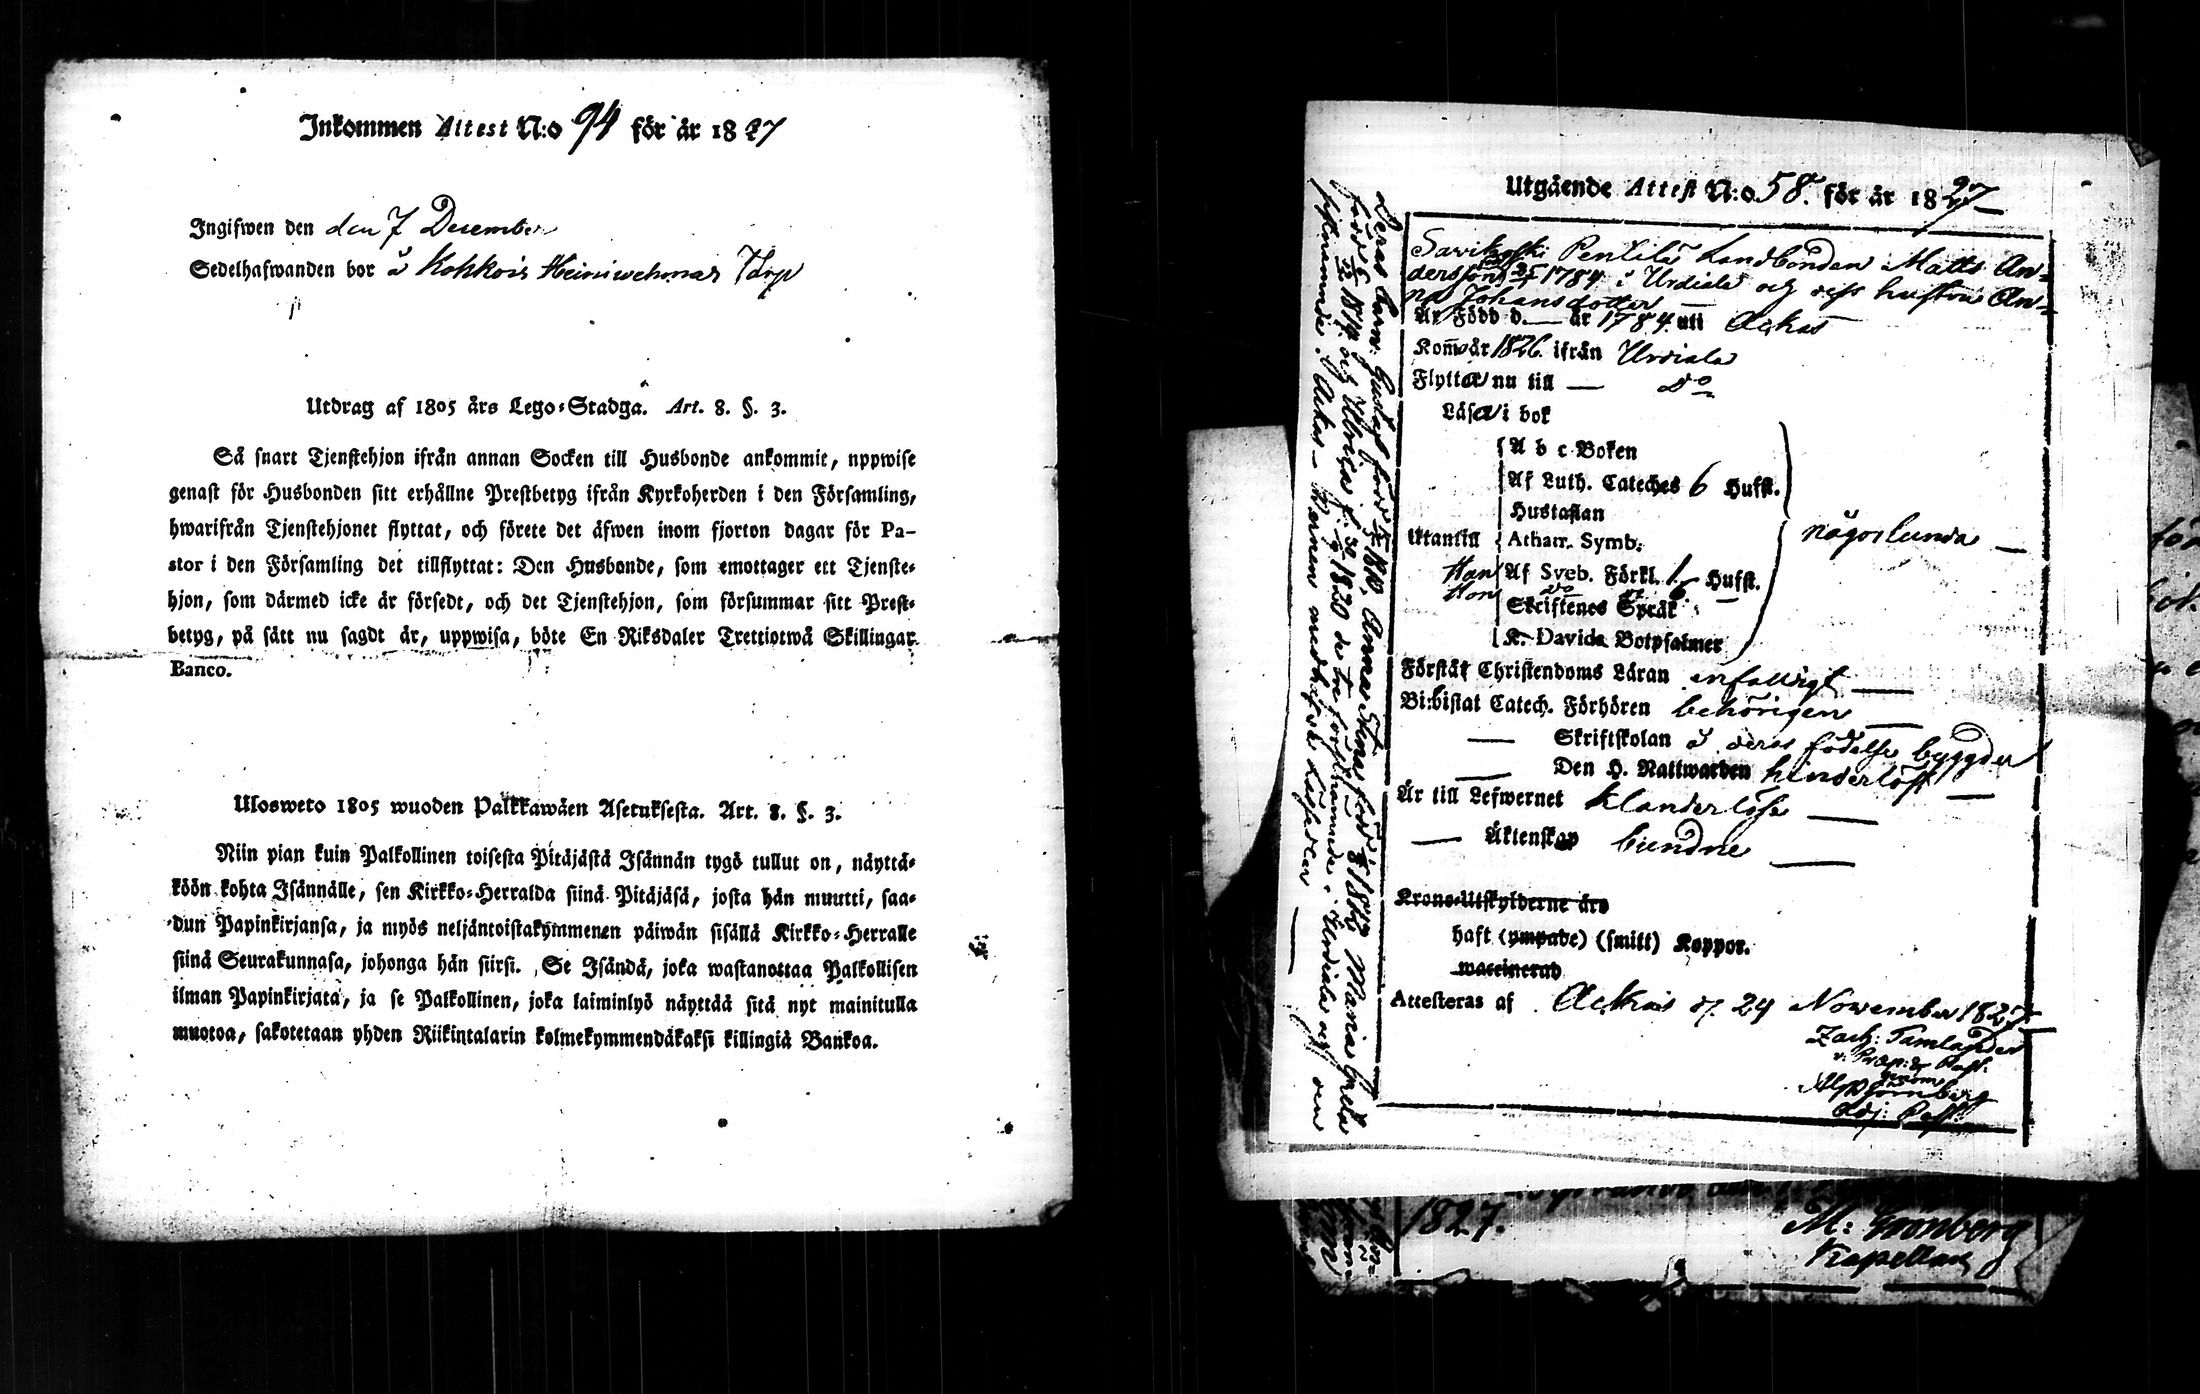 Inkommen Attest N:o 94 för år 1827
Ingifwen den den 7 December
Sedelhafwanden bor å Kohkois Heiniwehmas Torp
Utdrag af 1805 års Lego-Stadga. Art. 8. §. 3.
Så snart Tjenstehjon ifrån annan Socken till Husbonde ankommit, uppwise
genast för Husbonden sitt erhållne Prestbetyg ifrån Kyrkoherden i den Församling,
hwarifrån Tjenstehjonet flyttat, och förete det äfwen inom fjorton dagar för Pa-
stor i den Församling det tillflyttat: Den Husbonde, som emottager ett Tjenste-
hjon, som därmed icke är försedt, och det Tjenstehjon, som försummar sitt Prest-
betyg, på sätt nu sagdt är, uppwisa, böte En Riksdaler Trettiotwå Skillingar
Banco.
Ulosweto 1805 wuoden Palkkawäen Asetuksesta. Art. 8. §. 3.
Niin pian kuin Palkollinen toisesta Pitäjästä Isännän tygö tullut on, näyttä-
köön kohta Isännälle, sen Kirkko-Herralda siinä Pitäjäsä, josta hän muutti, saa-
dun Papinkirjansa, ja myös neljäntoistakymmenen päiwän sisällä Kirkko-Herralle
siinä Seurakunnasa, johonga hän siirsi. Se Isändä, joka wastanottaa Palkollisen
ilman Papinkirjata, ja se Palkollinen, joka laiminlyö näyttää sitä nyt mainitulla
muotoa, sakotetaan yhden Riikintalarin kolmekymmendäkaksi killingiä Bankoa.
Utgående Attest N:o 58. för år 1827
Sawikoski Penttilä Landbonden Matts An-
dersson född 1784 i Urdiala och dess hustru An-
na Johansdotter
Är Född d. — år 1784 uti Ackas
Kom år 1826 ifrån Urdiala
Flytta nu till — do
Läsa i bok
A b c Boken
Af Luth. Cateches 6 Hufst.
Hustaflan
Utantill Athan. Symb.
Han Af Sveb. Förkl. 1 Hufst.
Hon do 6
Skriftenes Språk
K. Davids Botpsalmer
någorlunda —
Förstår Christendoms Läran enfaldigt —
Bibistat Catech. Förhören behörigen —
— Skriftskolan å deras födelse bygder
— Den H. Nattwarden hinderlöst —
Är till Lefwernet klanderlöse —
— Äktenskap bundne —
Krono-Utskylderne års
haft (ympade) (smitt) Koppor.
waccinerad
Attesteras af Ackas d. 24 November 1827
Zach: Tamlander
v: Præp: & Past.
genom
Alf Björnberg
Adj: Past:
Deras barn: Gustaf född 1810, Anna Stina född 1812 Maria Greta
född 1817 och Ulrica f. 1820 de tre förstnämnde i Urdiala och den
sistnämnde i Ackas
1827.
M: Grönberg
Kapellan